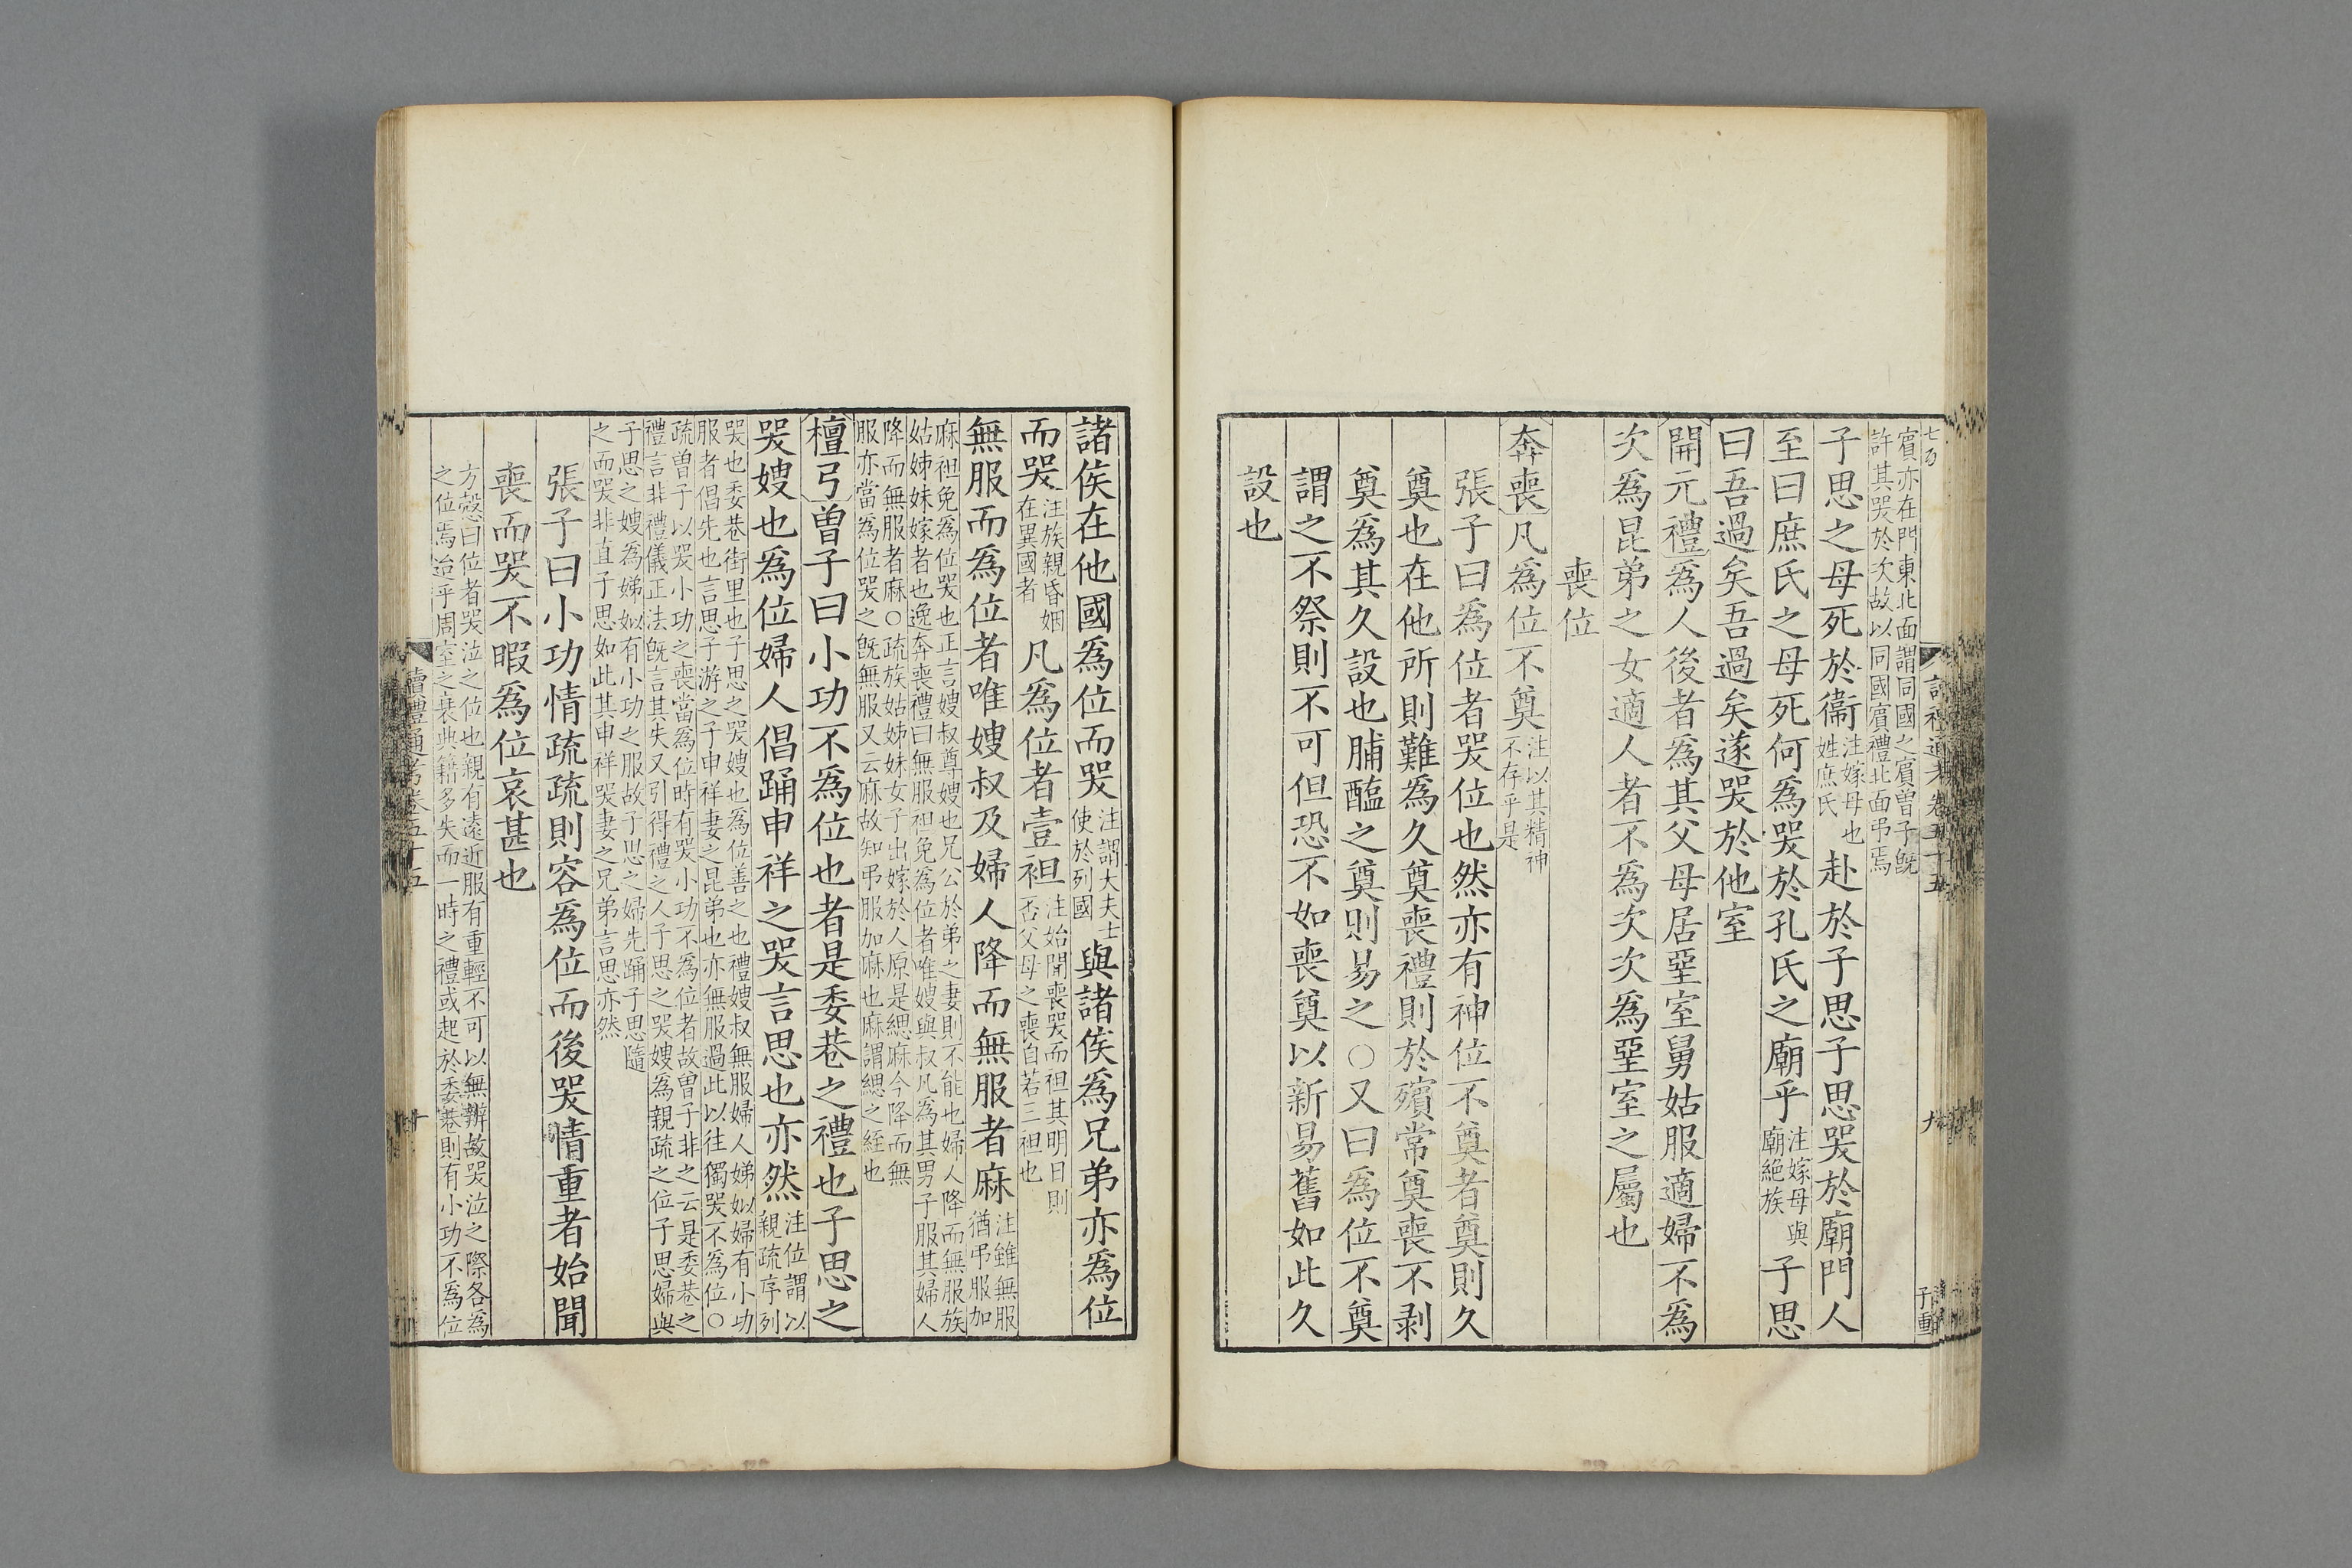 賓亦在門東北面謂同國之賓曾子旣
許其哭於次故以同國賓禮北面弔焉
子思之母死於衞注嫁母也姓庶氏赴於子思子思哭於廟門人
至曰庶氏之母死何爲哭於孔氏之廟乎注嫁母與廟絕族子思
曰吾過矣吾過矣遂哭於他室
開元禮爲人後者爲其父母居堊室舅姑服適婦不爲
次爲昆弟之女適人者不爲次次爲堊室之屬也
喪位
奔喪凡爲位不奠注以其精神不存乎是
張子曰爲位者哭位也然亦有神位不奠者奠則久
奠也在他所則難爲久奠喪禮則於殯常奠喪不剥
奠爲其久設也脯醢之奠則易之○又曰爲位不奠
謂之不祭則不可但恐不如喪奠以新易舊如此久
設也
諸侯在他國爲位而哭注謂大夫士使於列國與諸侯爲兄弟亦爲位
而哭注族親昏姻在異國者凡爲位者壹袒注始聞喪哭而袒其明日則否父母之喪自若三袒也
無服而爲位者唯嫂叔及婦人降而無服者麻注雖無服猶弔服加
麻袒免爲位哭也正言嫂叔尊嫂也兄公於弟之妻則不能也婦人降而無服族
姑姊妹嫁者也逸奔喪禮曰無服袒免爲位者唯嫂與叔凡爲其男子服其婦人
降而無服者麻○疏族姑姊妹女子出嫁於人原是緦麻今降而無
服亦當爲位哭之旣無服又云麻故知弔服加麻也麻謂緦之絰也
檀弓曾子曰小功不爲位也者是委巷之禮也子思之
哭嫂也爲位婦人倡踊申祥之哭言思也亦然注位謂以親疏序列
哭也委巷街里也子思之哭嫂也爲位善之也禮嫂叔無服婦人娣姒婦有小功
服者倡先也言思子游之子申祥妻之昆弟也亦無服過此以往獨哭不爲位○
疏曾子以哭小功之喪當爲位時有哭小功不爲位者故曾子非之云是委巷之
禮言非禮儀正法旣言其失又引得禮之人子思之哭嫂爲親疏之位子思婦與
子思之嫂爲娣姒有小功之服故子思之婦先踊子思隨
之而哭非直子思如此其申祥哭妻之兄弟言思亦然
張子曰小功情疏疏則容爲位而後哭情重者始聞
喪而哭不暇爲位哀甚也
方慤曰位者哭泣之位也親有遠近服有重輕不可以無辨故哭泣之際各爲
之位焉迨乎周室之衰典籍多失而一時之禮或起於委巷則有小功不爲位
讀禮通考卷五十五
十